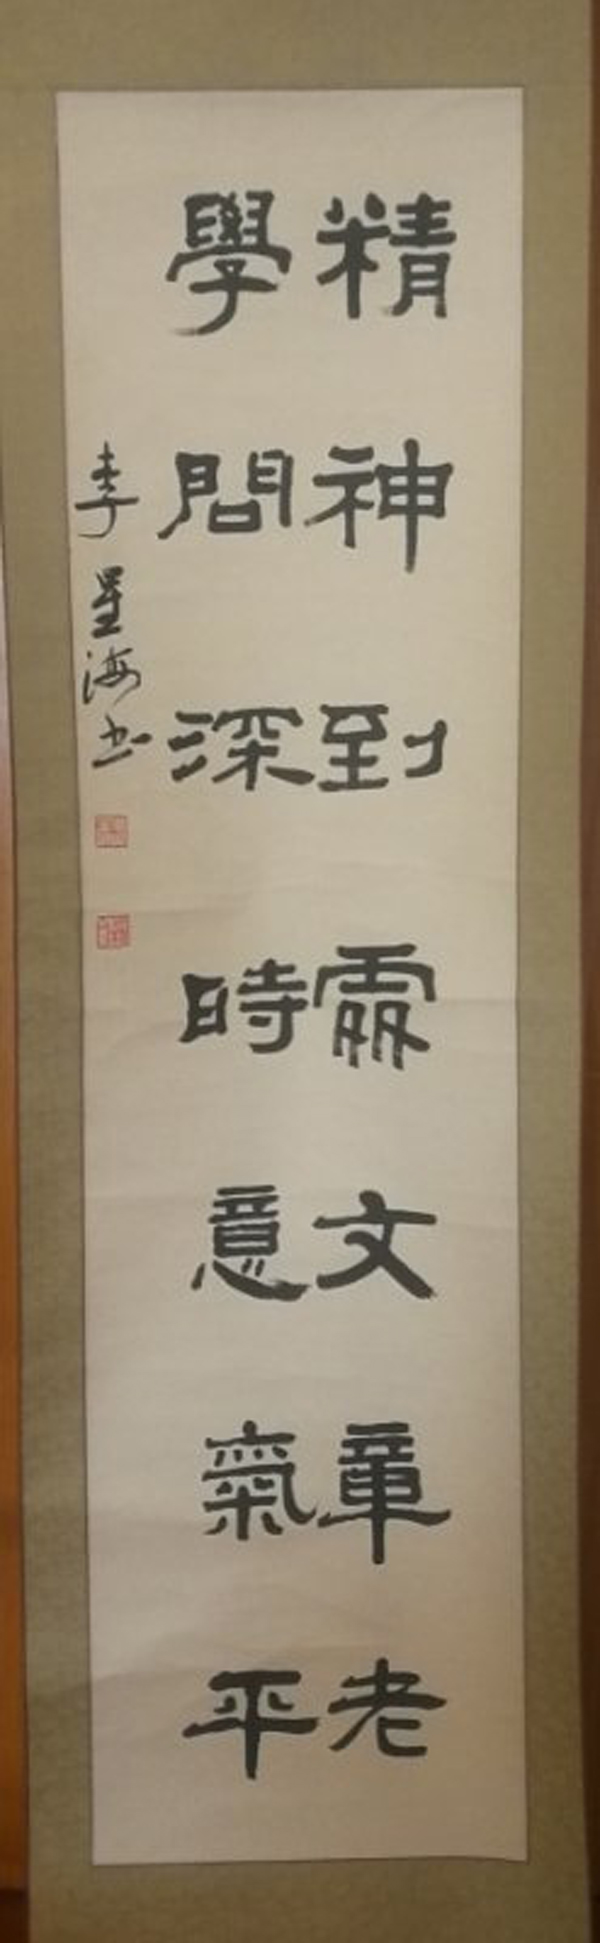 精神到處文章老
學問深時意氣平
李星海书